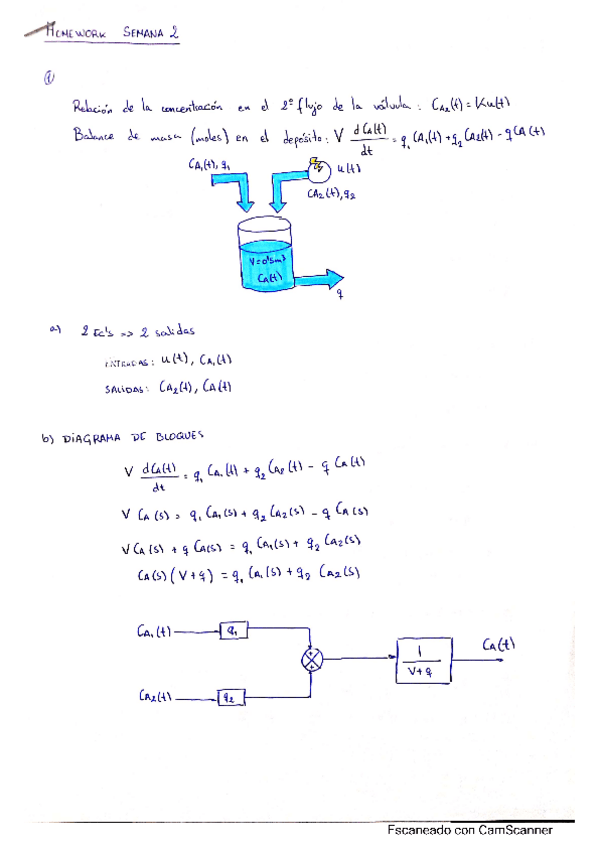 HOMEWORK SEMANA 2
①
Relación de la concentración en el 2º flujo de la válvula: CA2(t) = Ku(t)
Balance de masa (moles) en el depósito: V dCA(t)/dt = q1 CA1(t) + q2 CA2(t) - q CA(t)
CA1(t), q1
u(t)
CA2(t), q2
V=0'5m³
CA(t)
q
a) 2 Ec's => 2 salidas
ENTRADAS: u(t), CA1(t)
SALIDAS: CA2(t), CA(t)
b) DIAGRAMA DE BLOQUES
V dCA(t)/dt = q1 CA1(t) + q2 CA2(t) - q CA(t)
V CA(s) = q1 CA1(s) + q2 CA2(s) - q CA(s)
V CA(s) + q CA(s) = q1 CA1(s) + q2 CA2(s)
CA(s) (V + q) = q1 CA1(s) + q2 CA2(s)
CA1(t) q1
+ +
1/(V+q) CA(t)
CA2(t) q2
Escaneado con CamScanner